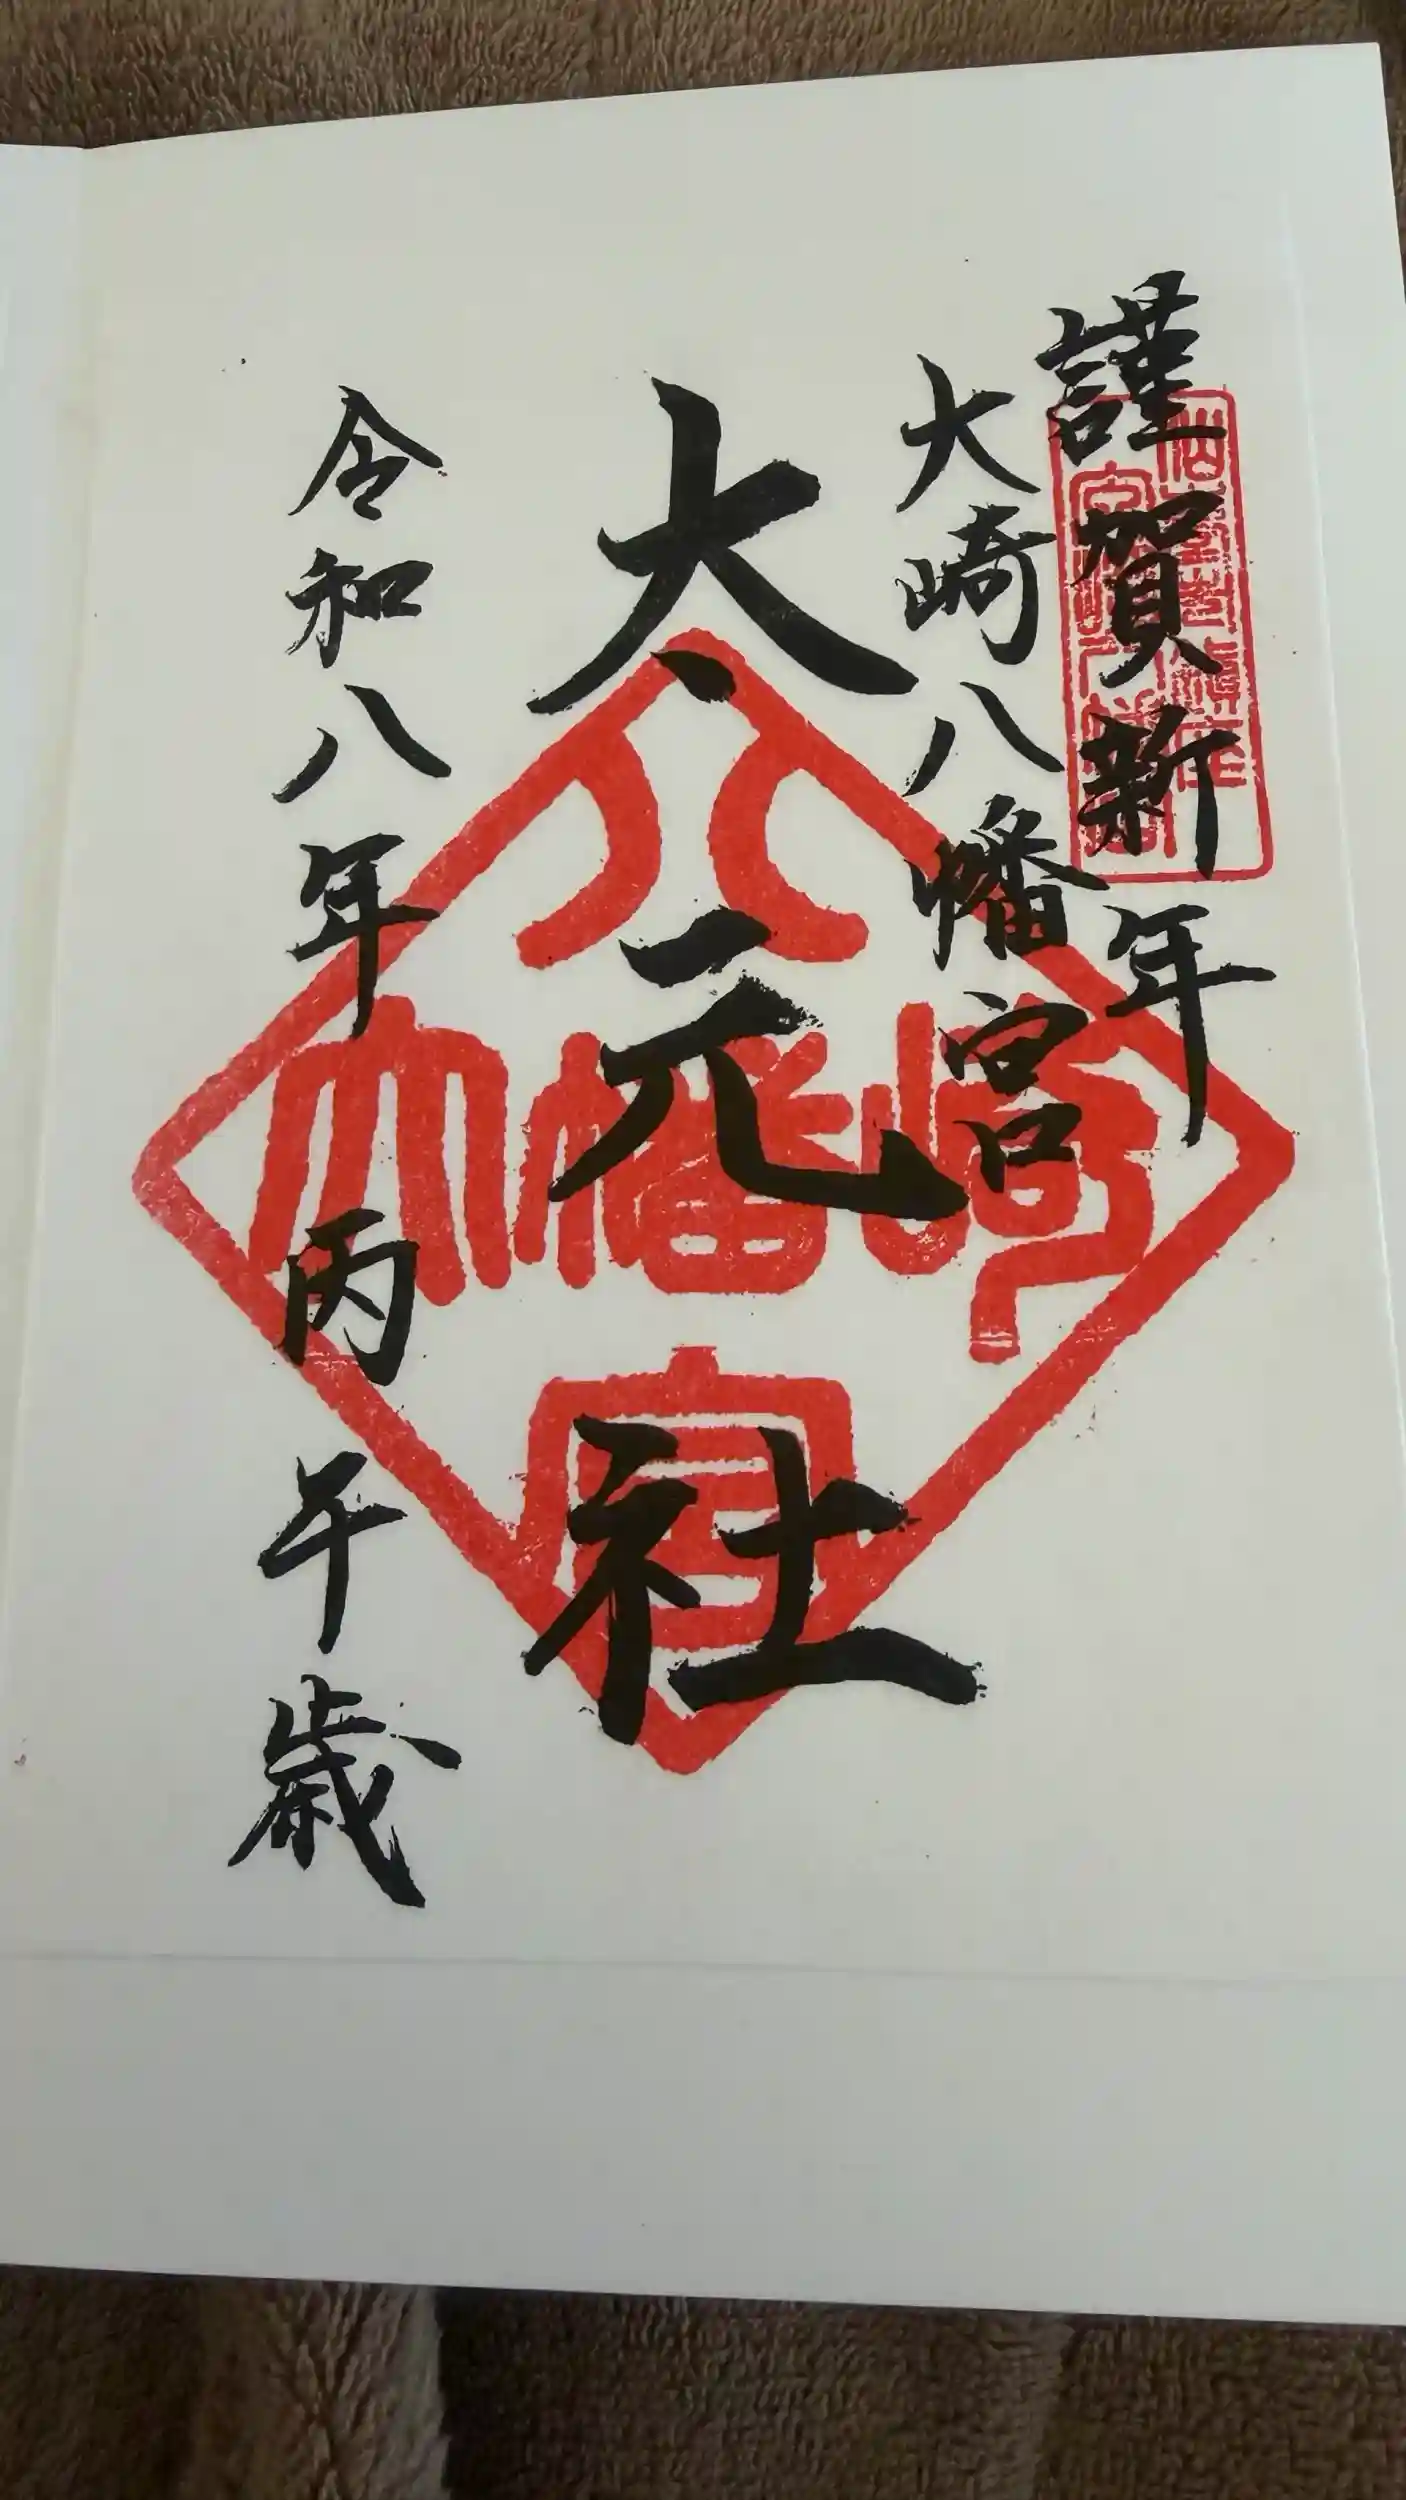 謹賀新年
大崎八幡宮
大元社
令和八年丙午歳
八
大崎八幡宮